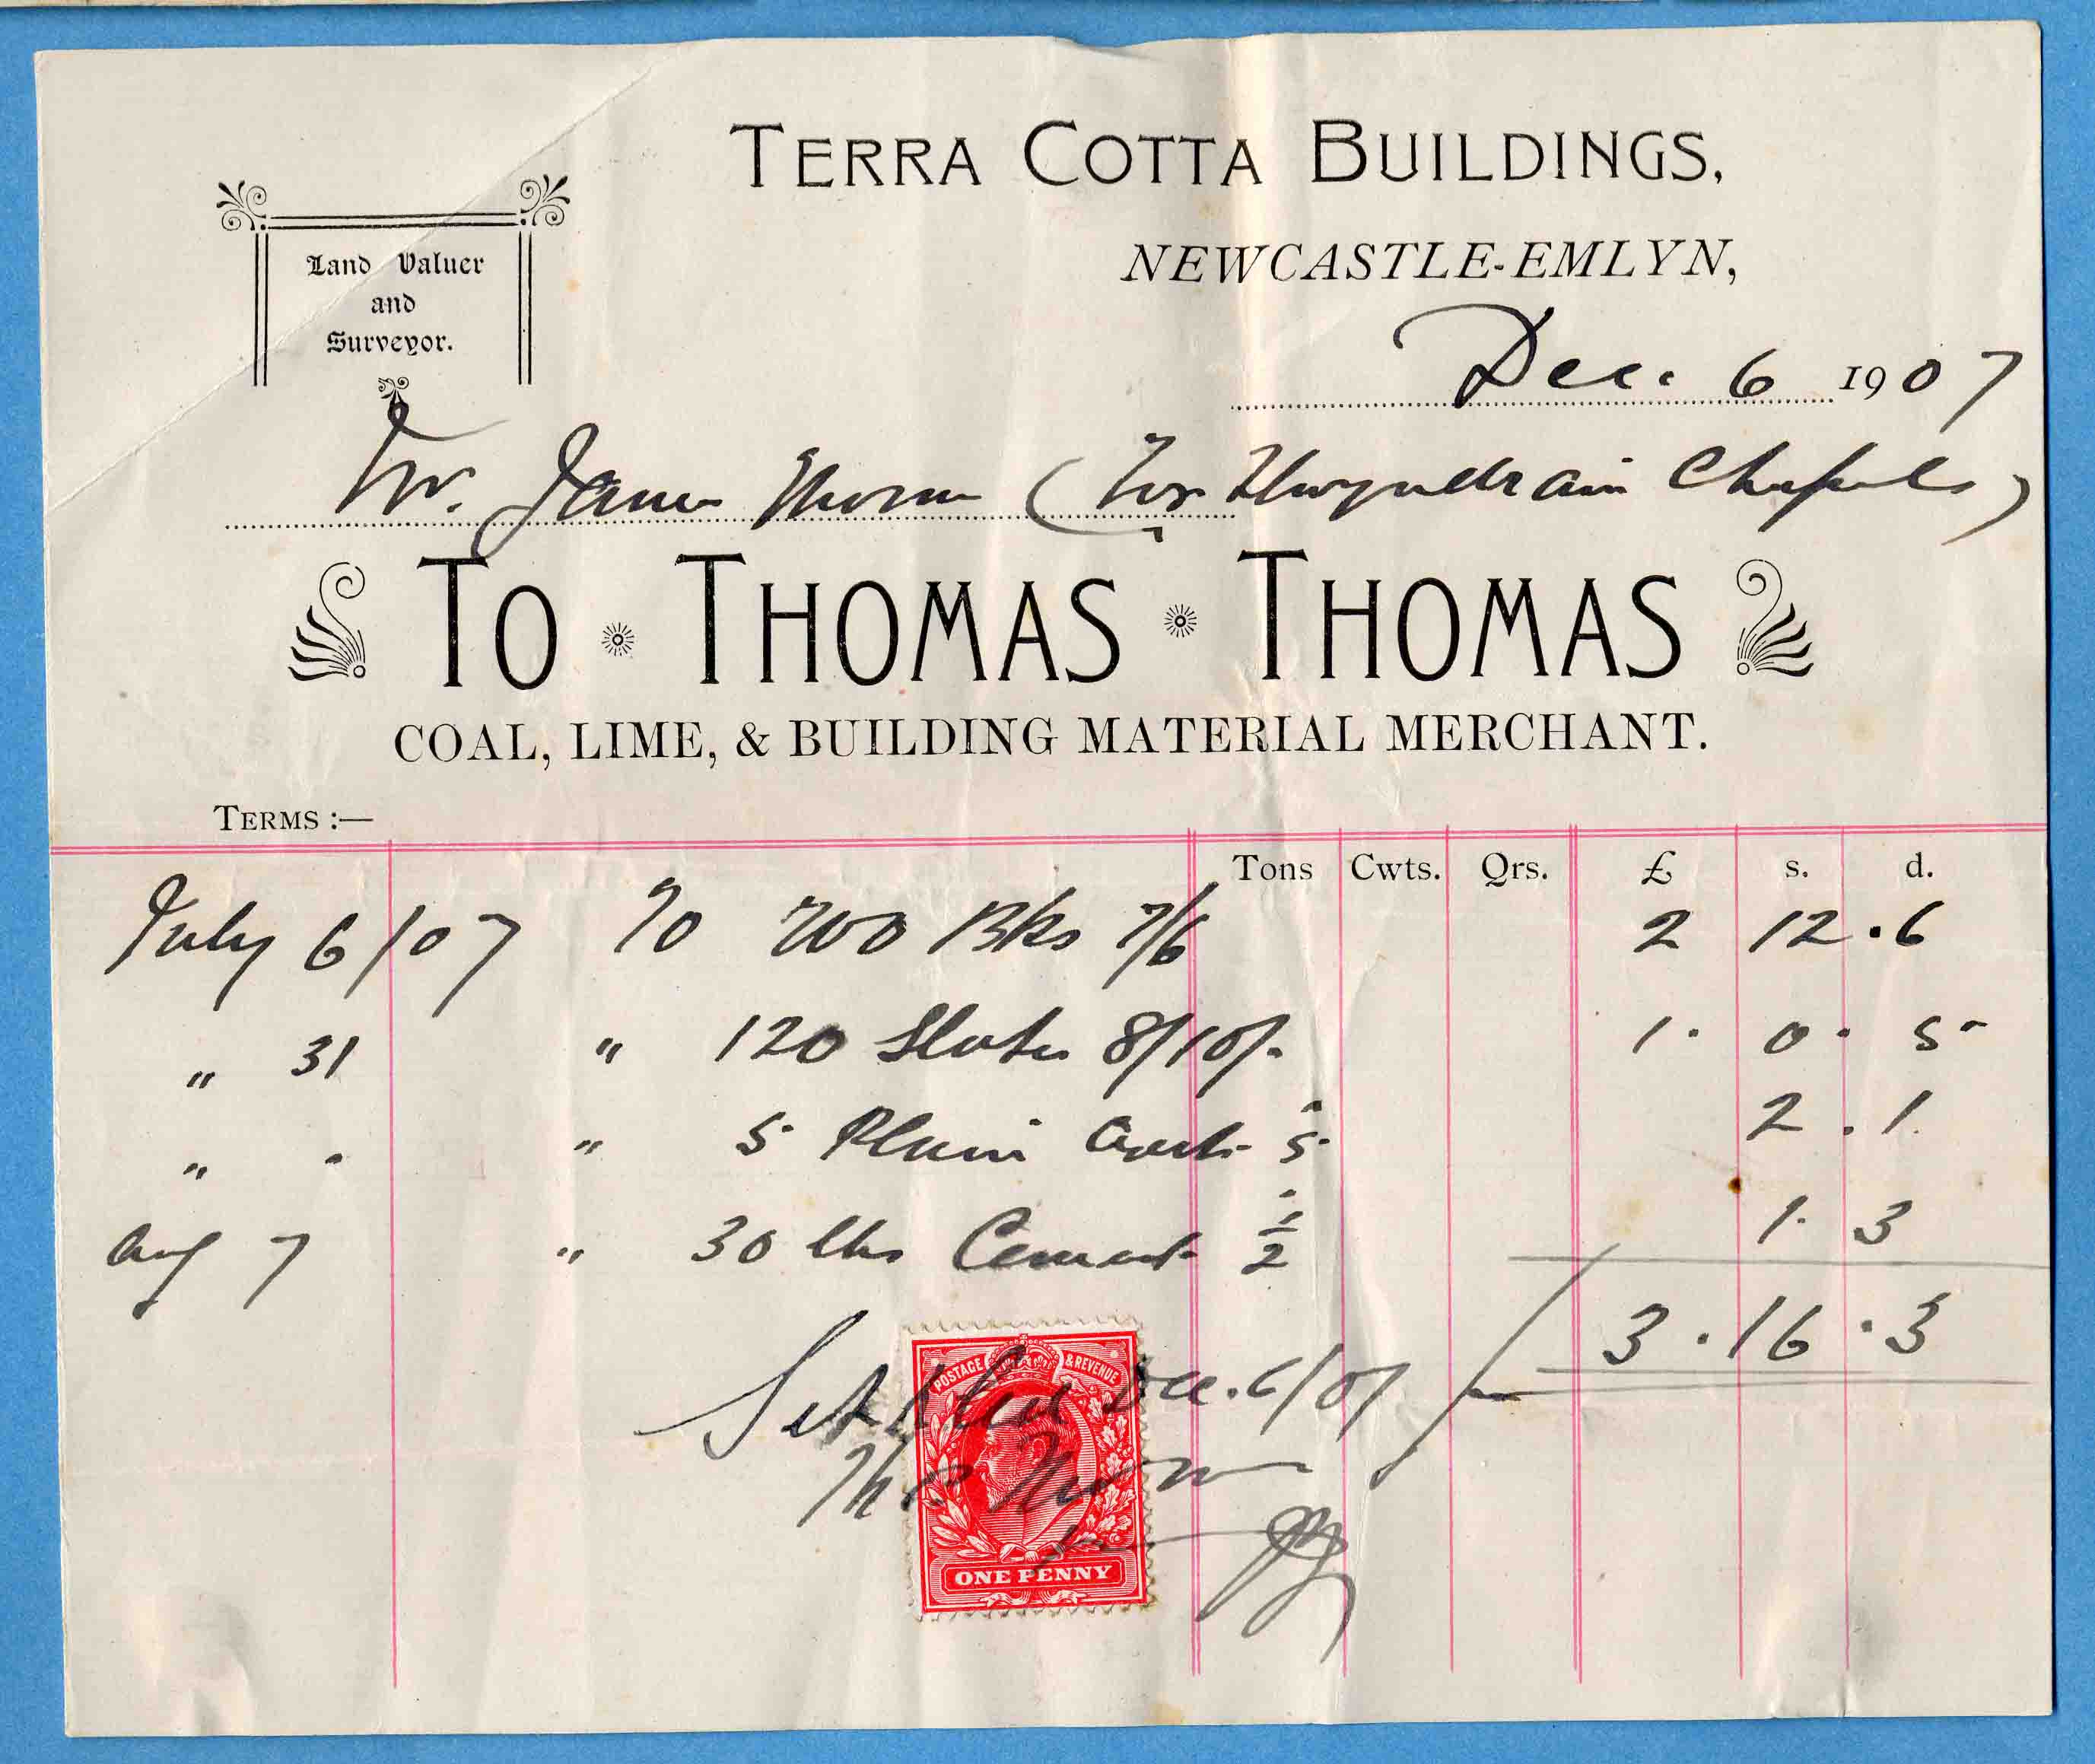 TERRA COTTA BUILDINGS,
NEWCASTLE-EMLYN,
Land Valuer
and
Surveyor.
Dec. 6 1907
Mr. James Thomas (For Llwyndrain Chapel)
TO THOMAS THOMAS
COAL, LIME, & BUILDING MATERIAL MERCHANT.
TERMS :—
Tons Cwts. Qrs. £ s. d.
July 6/07 To 700 Bks 7/6 2 12 . 6
" 31 " 120 Slates 8/10/- 1 . 0 . 5
" " " 5 Plain 5 2 . 1
Aug 7 " 30 lbs Cement 1/2 1 . 3
3 . 16 . 3
Settled Dec. 6/07
Thos Thomas
POSTAGE & REVENUE
ONE PENNY